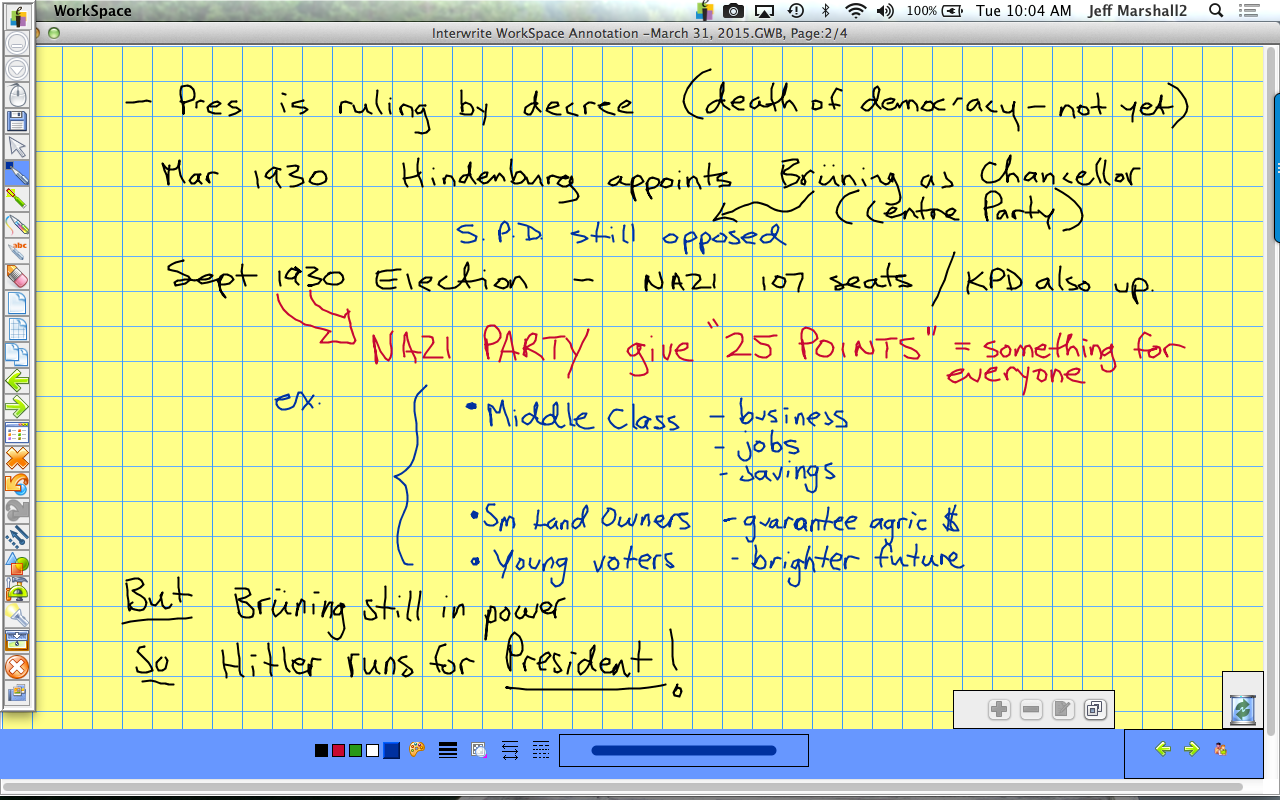 WorkSpace 100% Tue 10:04 AM Jeff Marshall2
Interwrite WorkSpace Annotation –March 31, 2015.GWB, Page:2/4
– Pres is ruling by decree (death of democracy – not yet)
Mar 1930 Hindenburg appoints Brüning as Chancellor
(Centre Party)
S.P.D. still opposed
Sept 1930 Election – NAZI 107 seats / KPD also up.
NAZI PARTY give "25 POINTS" = something for
everyone
ex.
• Middle Class – business
– jobs
– savings
• Sm Land Owners – guarantee agric $
• Young voters – brighter future
But Brüning still in power
So Hitler runs for President!
abc